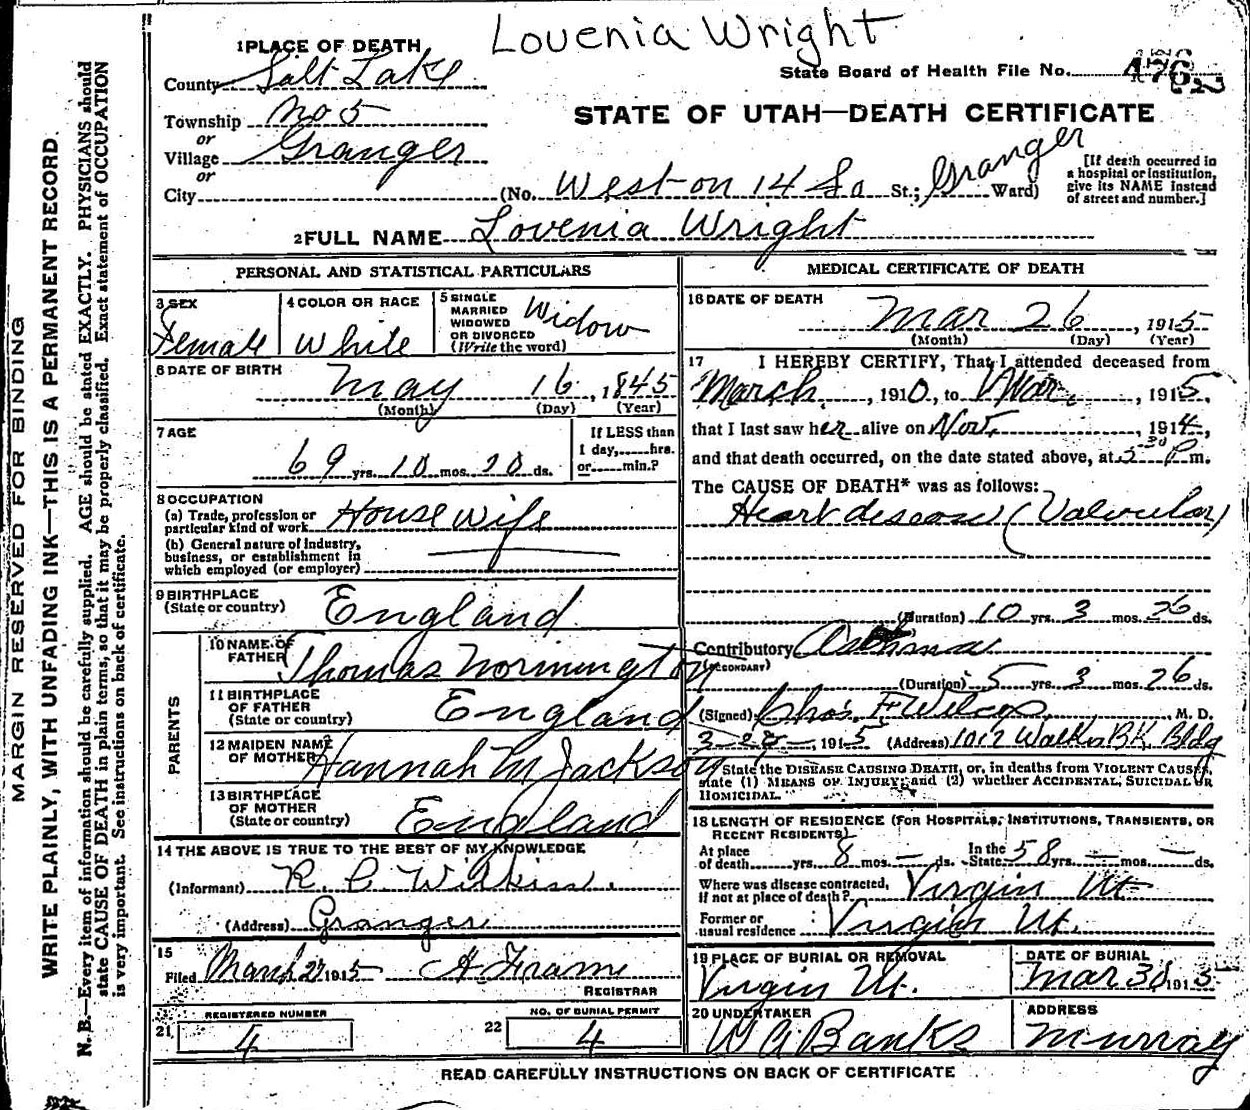 Lovenia Wright
1 PLACE OF DEATH
County Salt Lake
State Board of Health File No.
Township No 5
or
Village Granger
or
City
STATE OF UTAH—DEATH CERTIFICATE
(No. West on 14 So St.; Granger Ward)
[If death occurred in
a hospital or institution,
give its NAME instead
of street and number.]
2 FULL NAME Lovenia Wright
PERSONAL AND STATISTICAL PARTICULARS
3 SEX
Female
4 COLOR OR RACE
White
5 SINGLE
MARRIED
WIDOWED
OR DIVORCED
(Write the word)
Widow
6 DATE OF BIRTH
May 16, 1845
(Month) (Day) (Year)
7 AGE
69 yrs. 10 mos. 10 ds.
If LESS than
1 day,......hrs.
or......min.?
8 OCCUPATION
(a) Trade, profession or
particular kind of work House wife
(b) General nature of industry,
business, or establishment in
which employed (or employer)
9 BIRTHPLACE
(State or country) England
PARENTS
10 NAME OF
FATHER Thomas Normington
11 BIRTHPLACE
OF FATHER
(State or country) England
12 MAIDEN NAME
OF MOTHER Hannah M Jackson
13 BIRTHPLACE
OF MOTHER
(State or country) England
14 THE ABOVE IS TRUE TO THE BEST OF MY KNOWLEDGE
(Informant) R. C. Wilkins.
(Address) Granger
15
Filed March 27 1915 A Frame
REGISTRAR
21 REGISTERED NUMBER
4
22 NO. OF BURIAL PERMIT
4
MEDICAL CERTIFICATE OF DEATH
16 DATE OF DEATH
Mar 26, 1915
(Month) (Day) (Year)
17 I HEREBY CERTIFY, That I attended deceased from
March, 1910, to Mar., 1915.
that I last saw her alive on Nov., 1914,
and that death occurred, on the date stated above, at 5 30 P m.
The CAUSE OF DEATH* was as follows:
Heart disease (Valvular)
(Duration) 10 yrs. 3 mos. 26 ds.
Contributory Asthma
(SECONDARY)
(Duration) 5 yrs. 3 mos. 26 ds.
(Signed) Chas. F Wilcox, M. D.
1915 (Address) 1012 Walker BK. Bldg
* State the DISEASE CAUSING DEATH, or, in deaths from VIOLENT CAUSES,
state (1) MEANS OF INJURY; and (2) whether ACCIDENTAL, SUICIDAL OR
HOMICIDAL.
18 LENGTH OF RESIDENCE (FOR HOSPITALS, INSTITUTIONS, TRANSIENTS, OR
RECENT RESIDENTS)
At place
of death......yrs. 8 mos. — ds. In the
State 58 yrs. — mos. — ds.
Where was disease contracted,
if not at place of death? Virgin Ut
Former or
usual residence Virgin Ut.
19 PLACE OF BURIAL OR REMOVAL
Virgin Ut.
DATE OF BURIAL
Mar 30, 1915
20 UNDERTAKER
W A Banks
ADDRESS
Murray
READ CAREFULLY INSTRUCTIONS ON BACK OF CERTIFICATE
MARGIN RESERVED FOR BINDING
WRITE PLAINLY, WITH UNFADING INK—THIS IS A PERMANENT RECORD.
N. B.—Every item of information should be carefully supplied. AGE should be stated EXACTLY. PHYSICIANS should
state CAUSE OF DEATH in plain terms, so that it may be properly classified. Exact statement of OCCUPATION
is very important. See instructions on back of certificate.